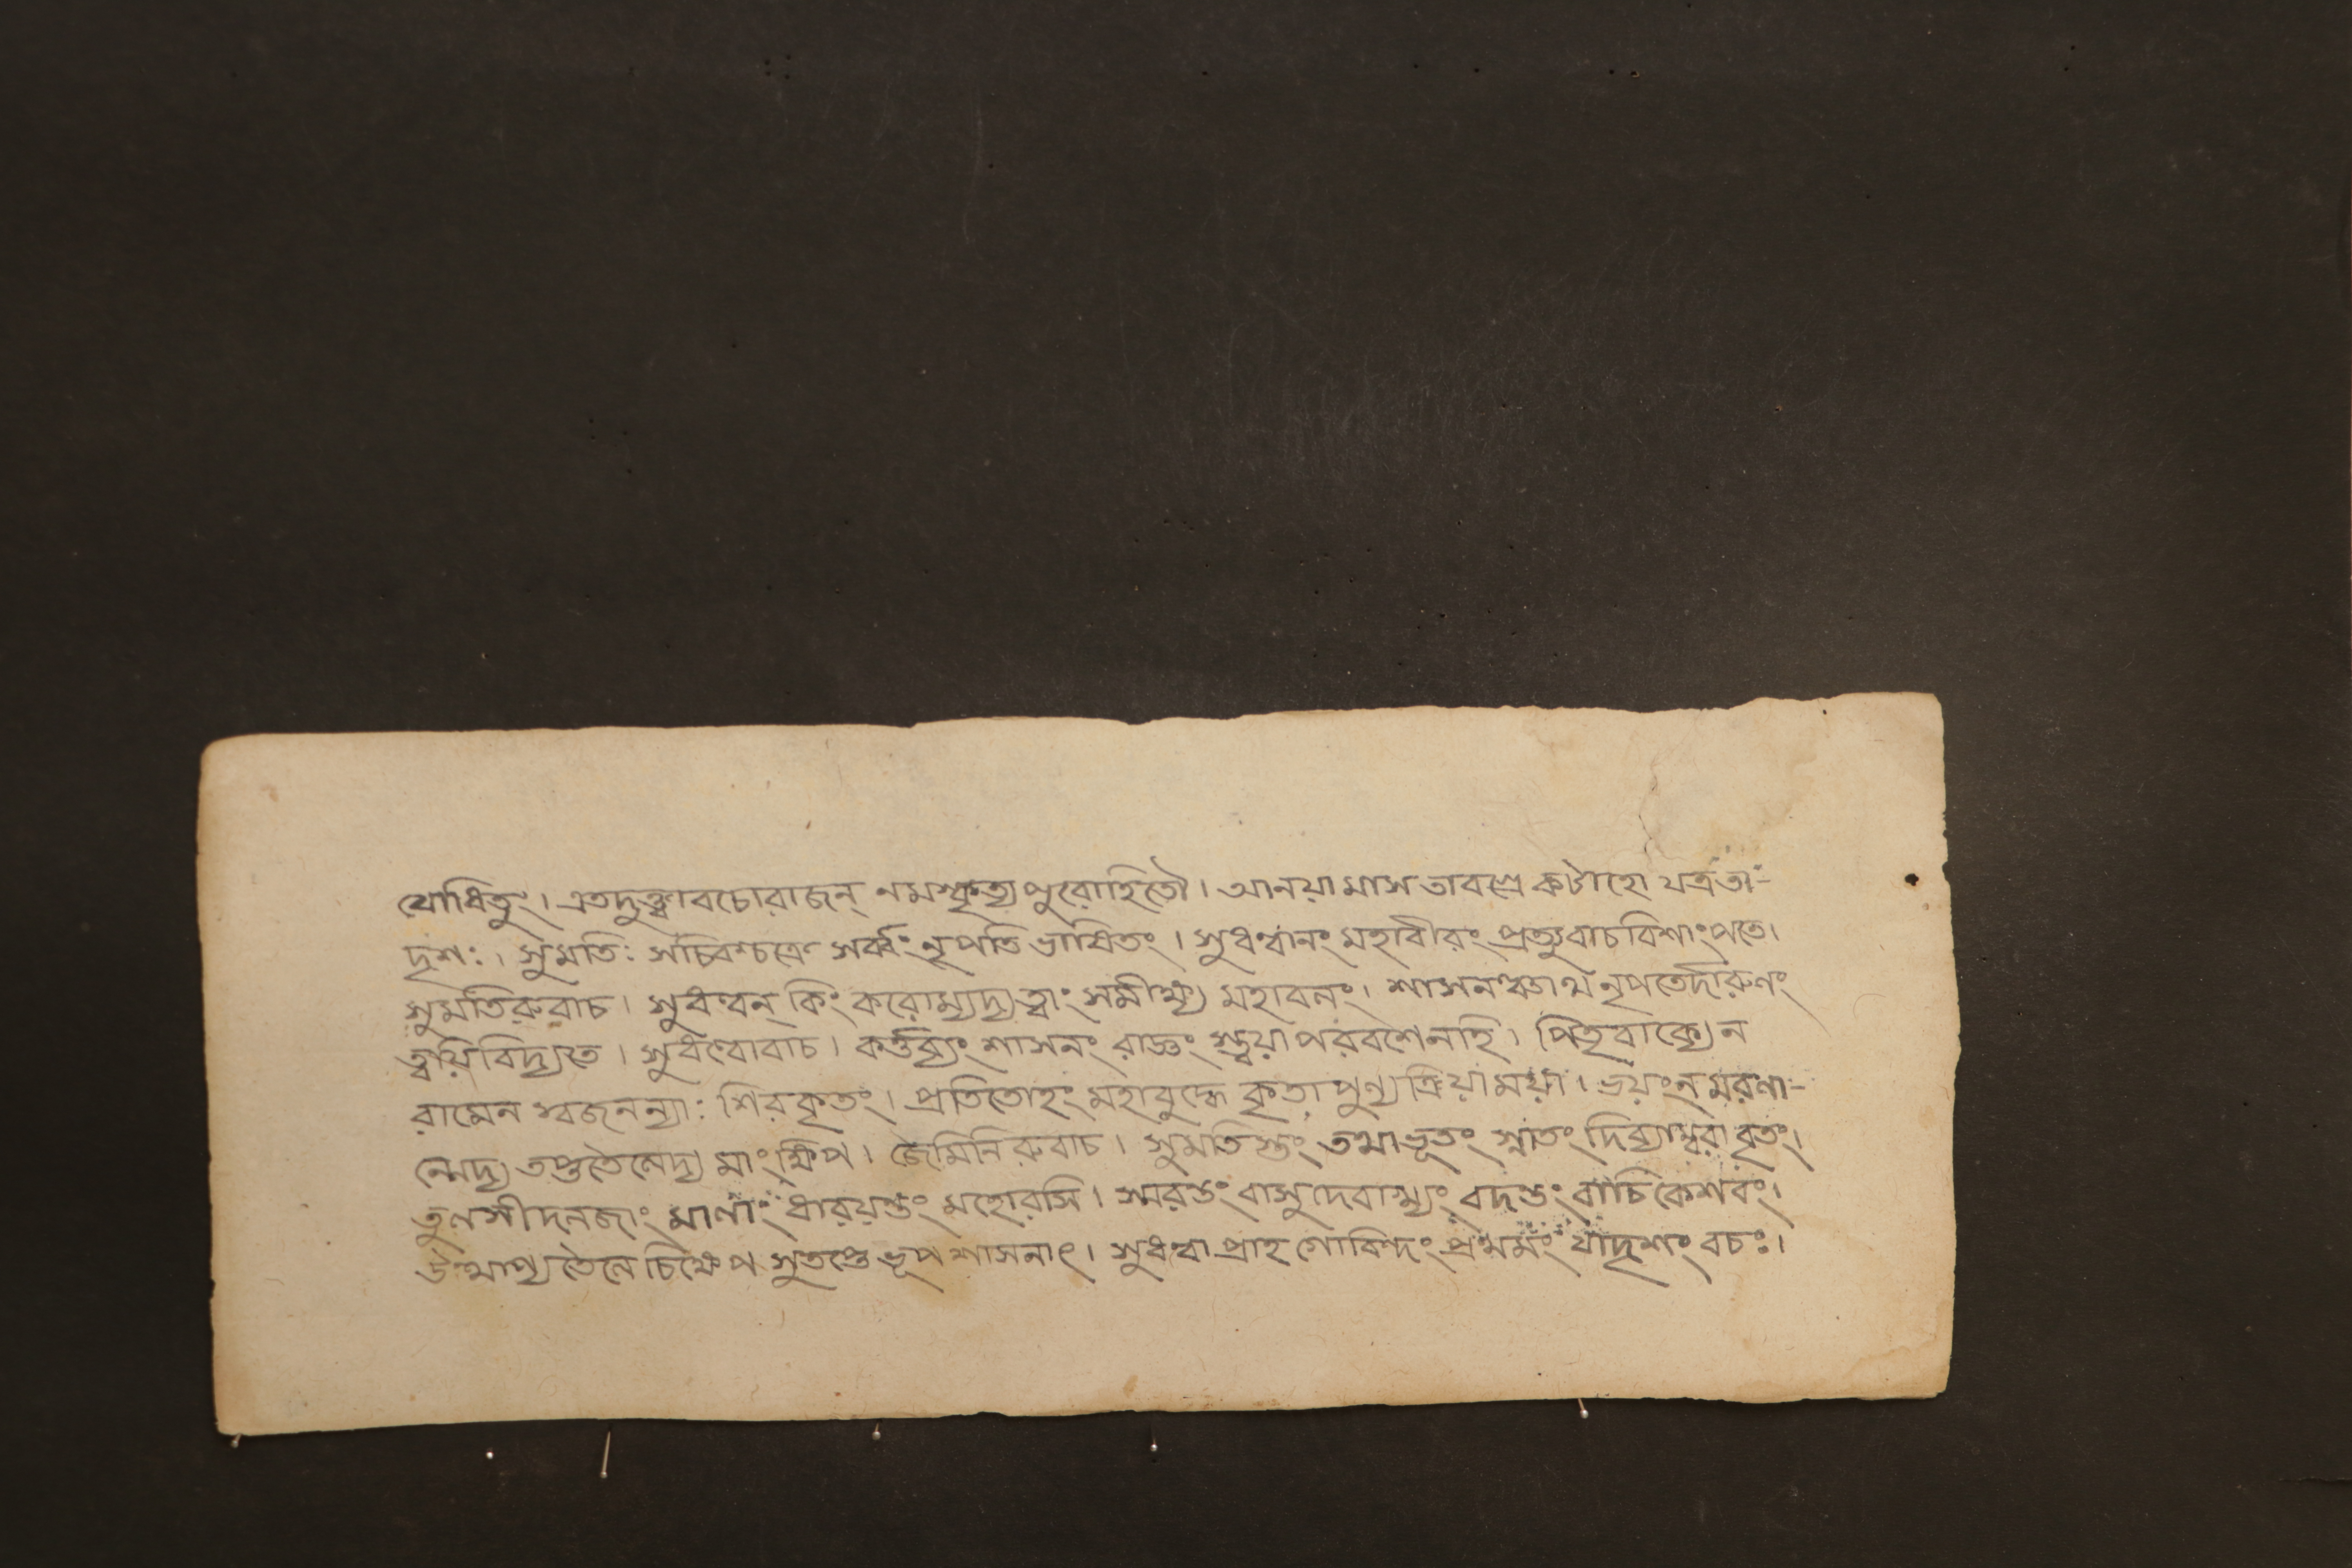 যোধিতুং। এতদুক্ত্বাবচোরাজন্ নমস্কৃত্য পুরোহিতৌ। আনয়ামাস তাবগ্রে কটাহো যত্রতা-
দৃশঃ। সুমতিঃ সচিবশ্চক্রে সর্ব্বং নৃপতি ভাষিতং। সুধন্বানং মহাবীরং প্রত্যুবাচ বিশাংপতে।
সুমতিরুবাচ। সুধন্বন্ কিং করোম্যদ্য ত্বাং সমীক্ষ্য মহাবলং। শাসনঞ্চাথ নৃপতের্দারুণং
ত্বয়ি বিদ্যতে। সুধন্বোবাচ। কর্ত্তব্যং শাসনং রাজ্ঞং স্ত্বয়া পরবশেনহি। পিতৃবাক্যেন
রামেন স্বজনন্যাঃ শিরকৃতং। প্রতিতোহং মহাবুদ্ধে কৃতা পুণ্যক্রিয়া ময়া। ভয়ং ন মরণা-
ন্মেদ্য তপ্ততৈলেদ্য মাং ক্ষিপ। জৈমিনিরুবাচ। সুমতিস্তং তথাভূতং স্নাতং দিব্যাম্বরাবৃতং।
তুলসীদলজাং মালাং ধারয়ন্তং মহোরসি। স্মরন্তং বাসুদেবাখ্যং বদন্তং বাচি কেশবং।
উত্থাপ্য তৈলে চিক্ষেপ সুতপ্তে ভূপ শাসনাৎ। সুধন্বা প্রাহ গোবিন্দং প্রথমং যাদৃশং বচঃ।